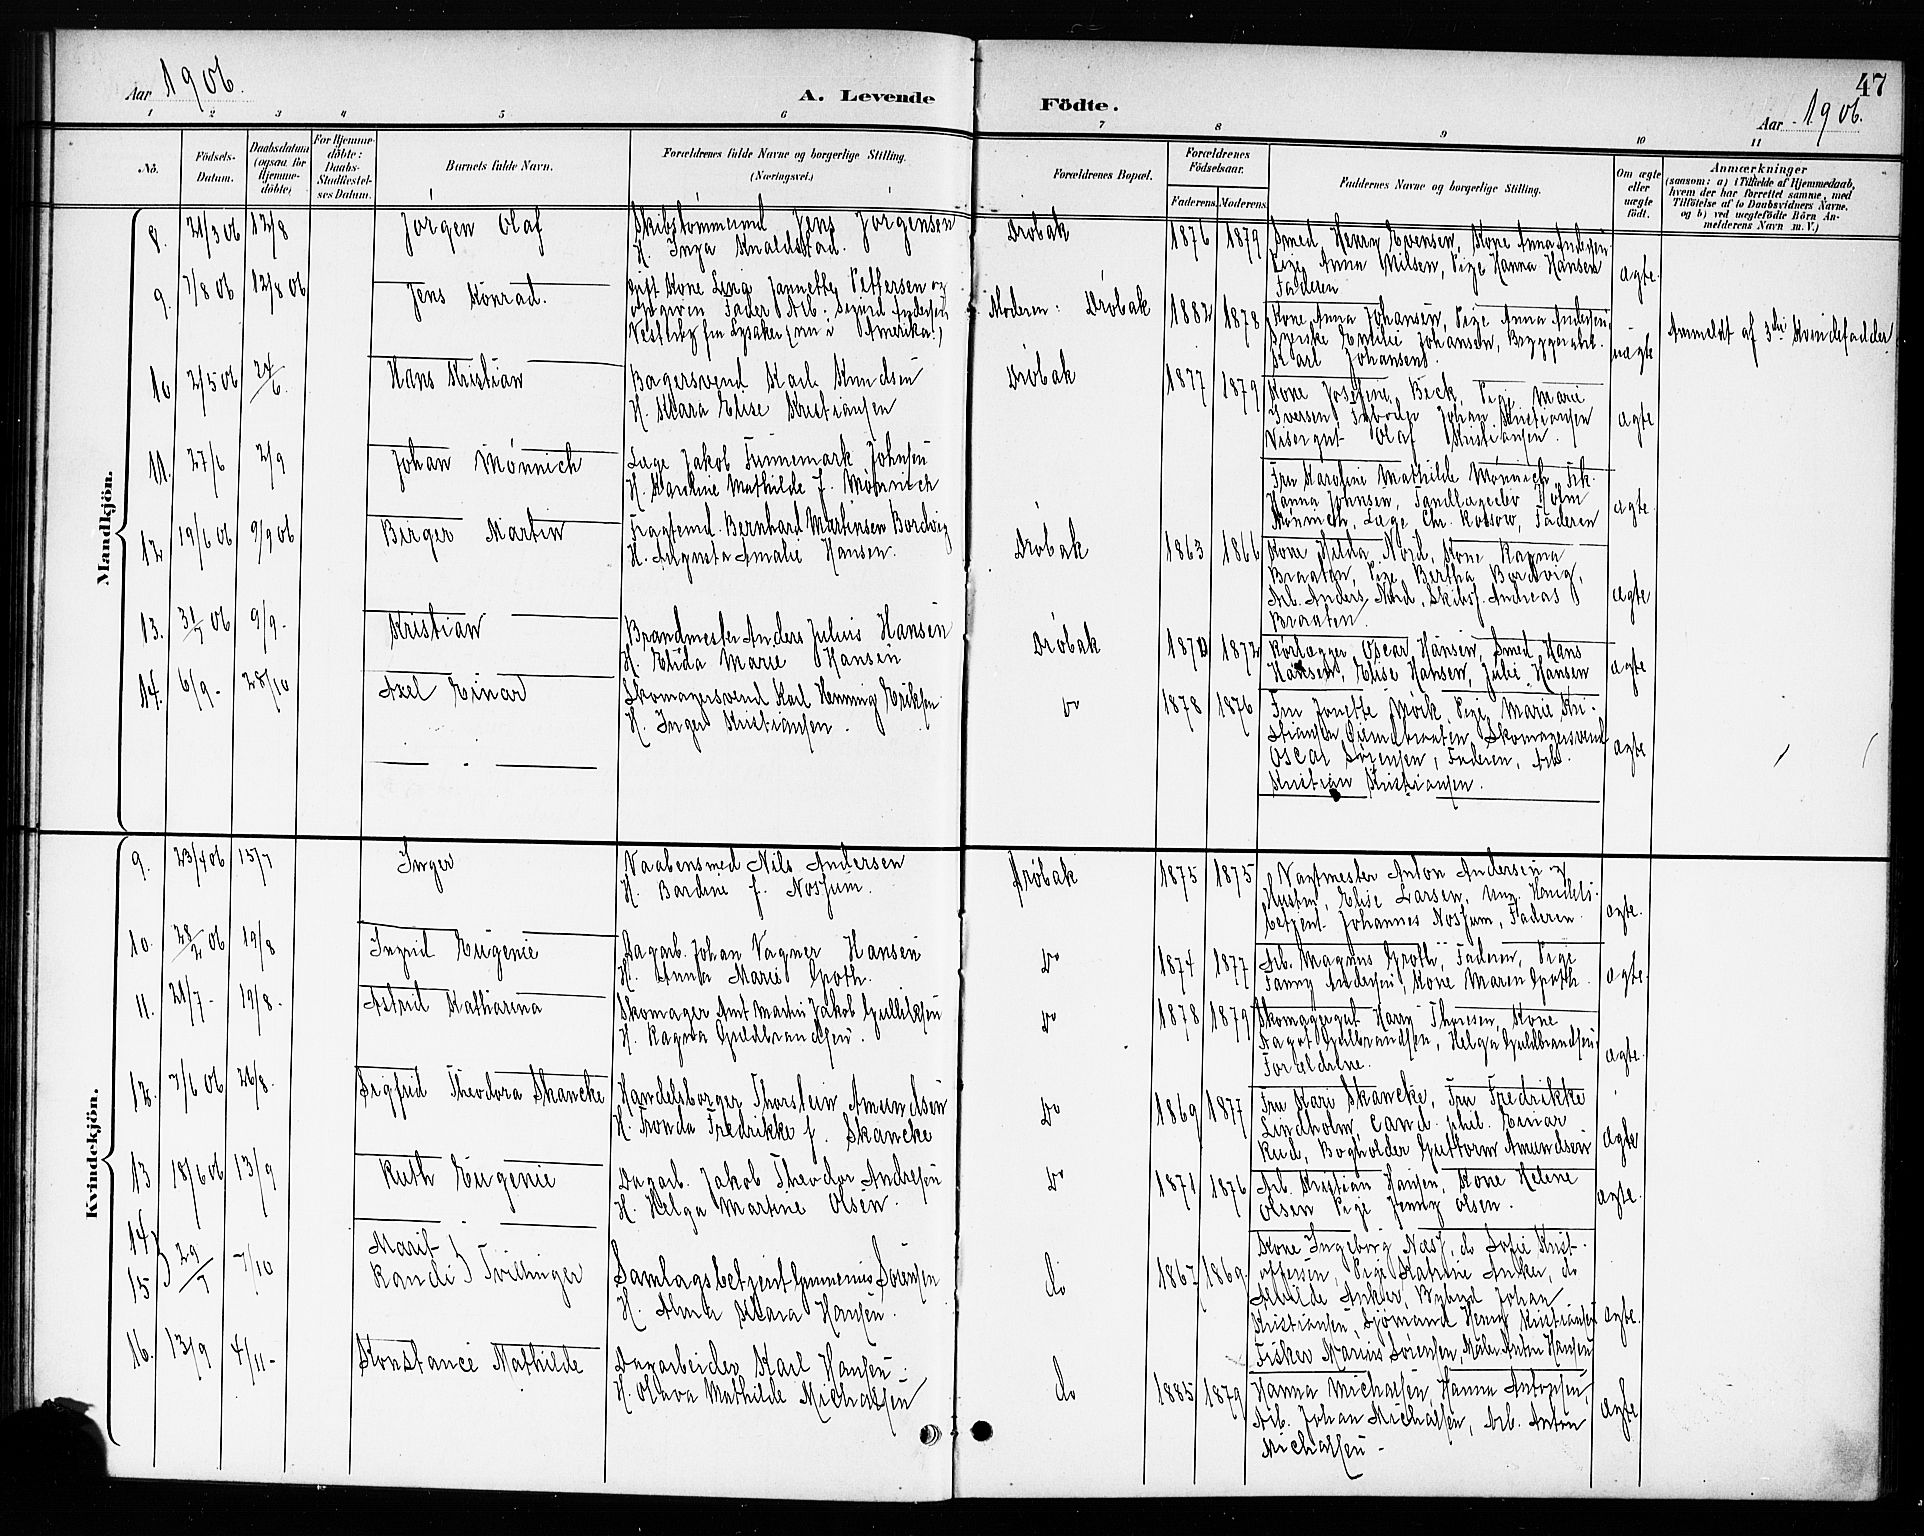 Aar 1906.
A. Levende
Födte.
47
Aar 1906.
1 2 3 4 5 6 7 8 9 10 11
No.
Födsels-Datum.
Daabsdatum (ogsaa for Hjemme-döbte)
For Hjemme-döbte: Daabs-Stadfæstel-ses Datum.
Barnets fulde Navn.
Forældrenes fulde Navne og borgerlige Stilling.
(Næringsvei.)
Forældrenes Bopæl.
Forældrenes Födselsaar.
Faderens. Moderens.
Faddernes Navne og borgerlige Stilling.
Om ægte eller uægte födt.
Anmærkninger
(saasom: a) i Tilfælde af Hjemmedaab,
hvem der har forrettet samme, med
Tilföielse af to Daabsvidners Navne.
og b) ved uægtefödte Börn An-
melderens Navn m. V.)
Mandkjön.
8. 21/3 06 12/8 Jörgen Olaf
Skibstömmermand Jens Jörgensen
H. Inga Knaldstad.
Dröbak 1876 1879
Smed Henry Evensen, Kone Anna
Pige Anna Nilsen, Pige Hanna Hansen
Faderen
ægte.
9. 7/8 06 12/8 06 Jens Konrad.
Gift Kone Lina Jannette Pettersen og
opgiven Fader Arb. Sigurd Andersen
Vestleby fra Lysaker (nu i Amerika!)
Moderen: Dröbak 1882 1878
Kone Anna Johansen, Pige Anna Andersen,
Syerske Emilie Johansen, Bryggeriarb.
Karl Johansen.
uægte
Anmeldt af 3die Kvindefadder.
10 2/5 06 24/6. Hans Kristian
Bagersvend Karl Knudsen
H. Klara Elise Kristiansen
Dröbak 1877 1879
Kone Josefine Beck, Pige Marie
Iversen, Johan Kristiansen
Visergut Olaf Kristiansen.
ægte
11. 27/6 2/9 Johan Mönnich
Læge Jakob Finnemark Johnsen
H. Karoline Mathilde f. Mönnich
Fru Karoline Mathilde Mönnich, Frk.
Hanna Johnsen, Tandlæge
Mönnich, Læge Chr. Kolsow, Faderen
ægte.
12. 19/6 06 9/9 06 Birger Martin
Fragtemd. Bernhard Martinsen Bordvig
H. Augusta Amalie Hansen.
Dröbak 1863 1866
Kone Hilda Nord, Kone Ragna
Braaten, Pige Bertha Bordvig,
Arb. Anders Nord, Skibsf. Andreas
Braaten.
ægte
13. 31/7 06 9/9- Kristian
Brandmester Anders Julius Hansen
H. Elida Marie Hansen
Dröbak 1872
Rörlægger Oscar Hansen, Smed Hans
Hansen, Elise Hansen, Julie Hansen
ægte
14. 6/9- 28/10 Axel Einar
Skomagersvend Karl Henning Eriksen
H. Inger Kristiansen.
Do 1878 1876
Fru Jonette Mörk, Pige Marie Kri-
stiansen, Skomagersvend
Oscar Sörensen, Faderen, Arb.
Kristian Kristiansen.
ægte
Kvindekjön.
9. 23/4 06 15/7 Inger
Vaabensmed Nils Andersen
H. Bardine f. Nossum.
Dröbak 1875 1875
Vagtmester Anton Andersen og
Hustru, Elise Larsen, ung. Handels-
betjent Johannes Nossum, Faderen
ægte.
10. 28/2 06 19/8 Ingrid Eugenie
Dagarb. Johan Vagner Hansen
H. Anna Marie Groth.
Do 1874 1877
Arb. Magnus Groth, Faderen, Pige
Fanny Andersen, Kone Maren Groth.
ægte.
11. 21/7- 19/8- Astrid Katharina
Skomager Amt Martin Jakob Gulliksen
H. Ragna Guldbrandsen.
Do 1878 1879
Skomagergut Harry Thoresen, Kone
Dagot Gulbrandsen, Helga Guldbrandsen,
Forældrene.
ægte.
12. 7/6 06 26/8. Sigfrid Theodora Skancke
Handelsborger Thorstein Amundsen
H. Tronda Fredrikke f. Skancke
Do 1869 1877
Fru Kari Skancke, Fru Fredrikke
Lindholm, Cand. phil. Einar
Rud, Bogholder Guttorm Amundsen
ægte
13 18/6 06 13/9 Ruth Eugenie
Dagarb. Jakob Theodor Andresen
H. Helga Martine Olsen.
Do 1871 1876
Arb. Kristian Hansen, Kone Helene
Olsen Pige Jenny Olsen.
ægte.
14 15 29/7 7/10 Marit Randi Tvillinger
Samlagsbetjent Sörensen
H. Alma Klara Hansen.
do 1867 1869.
Kone Ingeborg Næss, do Sofie Krist-
offersen, Pige Katrine Anker, do
Anker, Bybud Johan
Kristiansen, Sjömand Henry Kristiansen
Fisker Marius Sörensen, Maler Anton Hansen
ægte.
16. 13/9 4/11- Konstance Mathilde
Dagarbeider Karl Hansen.
H. Olava Mathilde Michalsen
do 1885 1879
Hanna Michalsen, Hanna Antonsen,
Arb. Johan Michalsen, Arb. Anton
Michalsen-
ægte